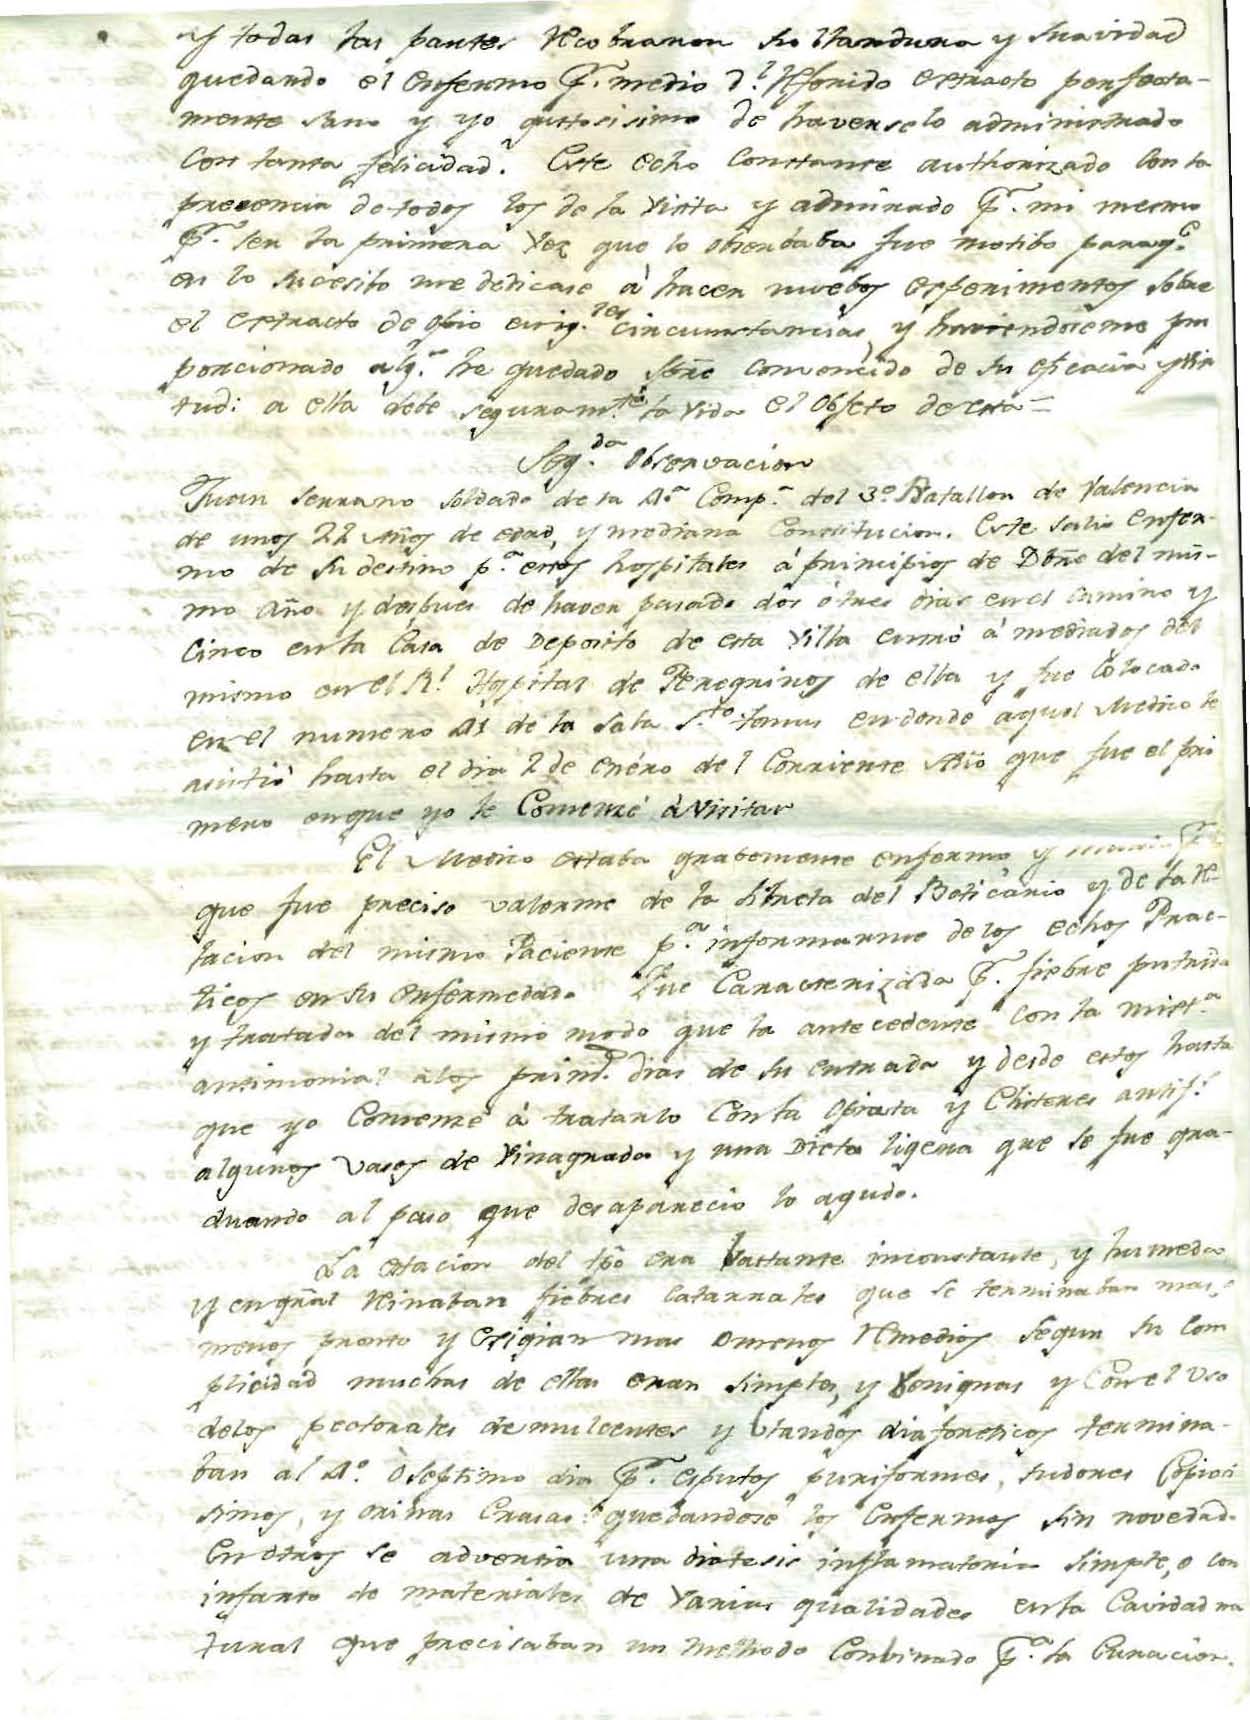 y todas las partes recobraron su blandura y suavidad
quedando el enfermo p.r medio d.l referido extracto perfecta-
mente sano y yo gustosisimo de haverselo administrado
con tanta felicidad. Este echo constante authorizado con la
presencia de todos los de la visita y admirado p.r mi mesmo
p.r ser la primera vez que lo observaba fue motibo paraq.e
en lo sucesibo me dedicase à hacer nuebos esperimentos sobre
el extracto de opio en ig.les circunstancias, y haviendoseme pro
porcionado alg.s he quedado sñre convencido de su eficacia y vir
tud: a ella debe seguram.te la vida el objeto de esta=
Seg.da Observacion
Juan Serrano soldado de la 4.a Comp.a del 3.o Batallon de Valencia
de unos 22 años de edad, y mediana constitucion. Este salio enfer-
mo de su destino p.a estos hospitales á principios de Dbre del mis-
mo año y despues de haver pasado dos ó tres dias en el camino y
cinco en la Casa de Deposito de esta Villa entró á mediados del
mismo en el R.l Hospital de Peregrinos de ella y fue colocado
en el numero 41 de la sala S.to tomas en donde aquel Medico le
asistió hasta el dia 2 de enéro del corriente año que fue el pri
mero en que yo le comenzé à visitar
El Medico estaba grabemente enfermo y
que fue preciso valerme de la libreta del Boticario y de la re-
lacion del mismo Paciente p.a informarme de los echos Prac-
ticos en su enfermedad. Fue caracterizada p.r fiebre putrida
y tratada del mismo modo que la antecedente con la mixt.a
antimonial a los prim.s dias de su entrada y desde estos hasta
que yo comenzé á tratarlo con la opiata y Clisteres antif.s
algunos vasos de vinagrada y una Dieta ligera que se fue gra-
duando al paso que desaparecio lo agudo.
La estacion del tpô era bastante inconstante, y humeda
y en gñal reinaban fiebres catarrales que se terminaban mas, o
menos pronto y exigian mas o menos remedios segun su com
plicidad muchas de ellas eran simples, y benignas y con el uso
de los pectorales demulcentes y blandos diaforeticos termina-
ban al 4.o o septimo dia p.r esputos puriformes, sudores copiosi
simos, y orinas crasas: quedandose los enfermos sin novedad.
En otros se advertia una diatesis inflamatoria simple, o con
infarto de materiales de varias qualidades en la cavidad na
tural que precisaban un methodo combinado p.a la curacion.